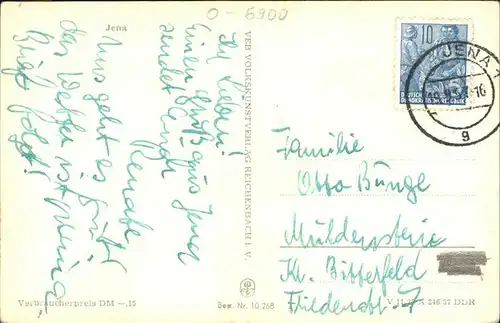 0-6900
Jena
Ihr Lieben!
Einen Gruß aus Jena
sendet Euch
Renate
Uns geht es gut!
das Wetter ist prima
Brief folgt!
VEB VOLKSKUNSTVERLAG REICHENBACH I. V.
10
DEUTSCHE
DEMOKRATISCHE REPUBLIK
JENA
g
Familie
Otto Bunge
Muldenstein
Kr. Bitterfeld
Friedensstr. 7
Verbraucherpreis DM —,15
Best. Nr. 10 268
246 57 DDR